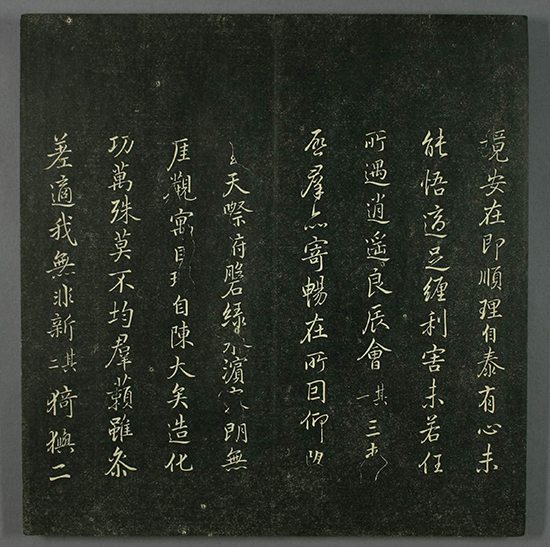 境安在即順理自泰有心未
能悟適足纏利害未若任
所遇逍遙良辰會其一三
啓羣品寄暢在所因仰
天際府磐綠水濱朗無
厓觀寓目理自陳大矣造化
功萬殊莫不均羣籟雖參
差適我無非新其二猗與二